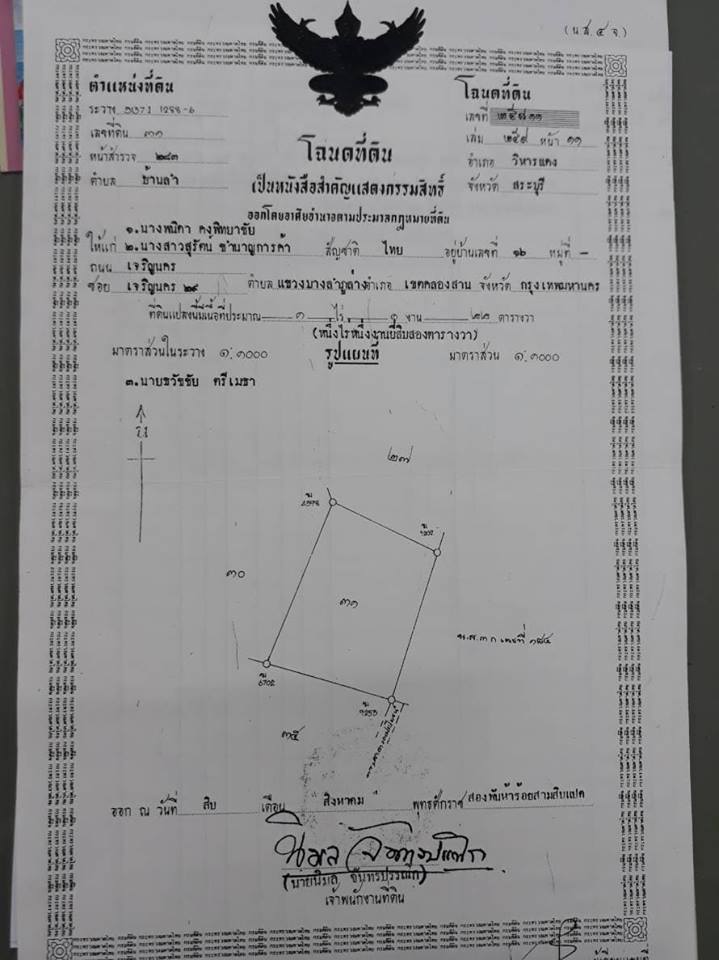 (น.ส.๔ จ)
ตำแหน่งที่ดิน
ระวาง 5137 I 1288-6
เลขที่ดิน ๓๑
หน้าสำรวจ ๒๘๓
ตำบล บ้านลำ
โฉนดที่ดิน
เลขที่ ๒๕๘๑๑
เล่ม ๒๕๙ หน้า ๑๑
อำเภอ วิหารแดง
จังหวัด สระบุรี
โฉนดที่ดิน
เป็นหนังสือสำคัญแสดงกรรมสิทธิ์
ออกโดยอาศัยอำนาจตามประมวลกฎหมายที่ดิน
๑.นางพนิดา คงพิทยาชัย
ให้แก่ ๒.นางสาวสุรัตน์ ชำนาญการค้า สัญชาติ ไทย อยู่บ้านเลขที่ ๑๖ หมู่ที่ -
ถนน เจริญนคร
ซอย เจริญนคร ๒๙ ตำบล แขวงบางลำภูล่าง อำเภอ เขตคลองสาน จังหวัด กรุงเทพมหานคร
ที่ดินแปลงนี้มีเนื้อที่ประมาณ ๑ ไร่ ๑ งาน ๒๒ ตารางวา
(หนึ่งไร่หนึ่งงานยี่สิบสองตารางวา)
มาตราส่วนในระวาง ๑:๑๐๐๐ รูปแผนที่ มาตราส่วน ๑:๑๐๐๐
๓.นายธวัชชัย ตรีเมฆา
น
๒๗
๓๐
๓๑
น.ส.๓ ก เลขที่ ๑๘๔
6702
9253
๓๕
ออก ณ วันที่ สิบ เดือน สิงหาคม พุทธศักราช สองพันห้าร้อยสามสิบแปด
(นายนิมล จันทรปรรณิก)
เจ้าพนักงานที่ดิน